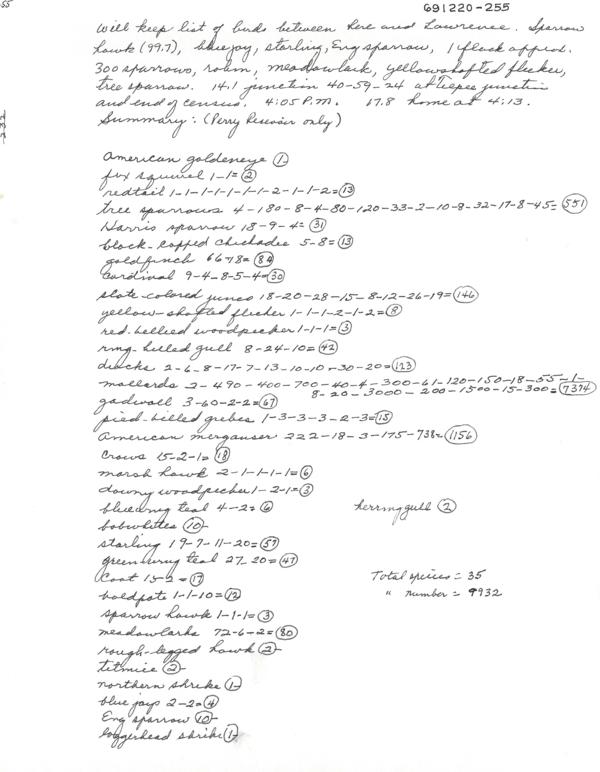 55
691220-255
Will keep list of birds between here and Lawrence. Sparrow
hawk (99.7), blue jay, starling, Eng sparrow, 1 flock approx.
300 sparrows, robin, meadowlark, yellowshafted flicker,
tree sparrow. 14.1 junction 40-59-24 at Teepee junction
and end of census. 4:05 P.M. 17.8 home at 4:13.
Summary: (Perry Reservoir only)
American goldeneye 1-
fox squirrel 1-1= 2
redtail 1-1-1-1-1-1-1-2-1-1-2= 13
tree sparrows 4-180-8-4-80-120-33-2-10-8-32-17-8-45= 551
Harris sparrow 18-9-4= 31
black-capped chickadee 5-8= 13
goldfinch 6 78= 84
Cardinal 9-4-8-5-4= 30
slate-colored junco 18-20-28-15-8-12-26-19= 146
yellow-shafted flicker 1-1-1-2-1-2= 8
red-bellied woodpecker 1-1-1= 3
ring-billed gull 8-24-10= 42
ducks 2-6-8-17-7-13-10-10-30-20= 123
mallards 2-490-400-700-40-4-300-61-120-150-18-55-1-
8-20-3000-200-1500-15-300= 7374
gadwall 3-60-2-2= 67
pied-billed grebes 1-3-3-3-2-3= 15
American merganser 222-18-3-175-738= 1156
Crows 15-2-1= 18
marsh hawk 2-1-1-1-1= 6
downy woodpecker 1-2-1= 3
bluewing teal 4-2= 6 herring gull 2
bobwhites 10-
starling 19-7-11-20= 57
greenwing teal 27-20= 47
Coot 15-2= 17 Total species = 35
baldpate 1-1-10= 12 " number = 9932
sparrow hawk 1-1-1= 3
meadowlarks 72-6-2= 80
rough-legged hawk 2-
titmice 2-
northern shrike 1-
blue jays 2-2= 4
Eng sparrow 10-
loggerhead shrike 1-